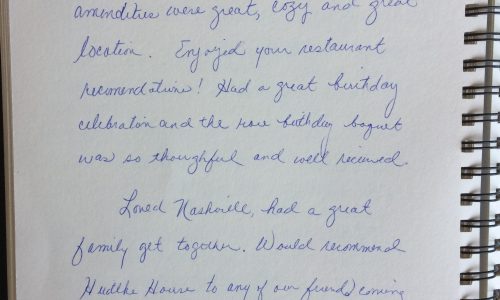 amendities were great, cozy and great
location. Enjoyed your restaurant
recomendations! Had a great birthday
celebration and the rose bithday boquet
was so thoughful and well recieved.
Loved Nashville, had a great
family get together. Would recommend
House to any of our friends coming